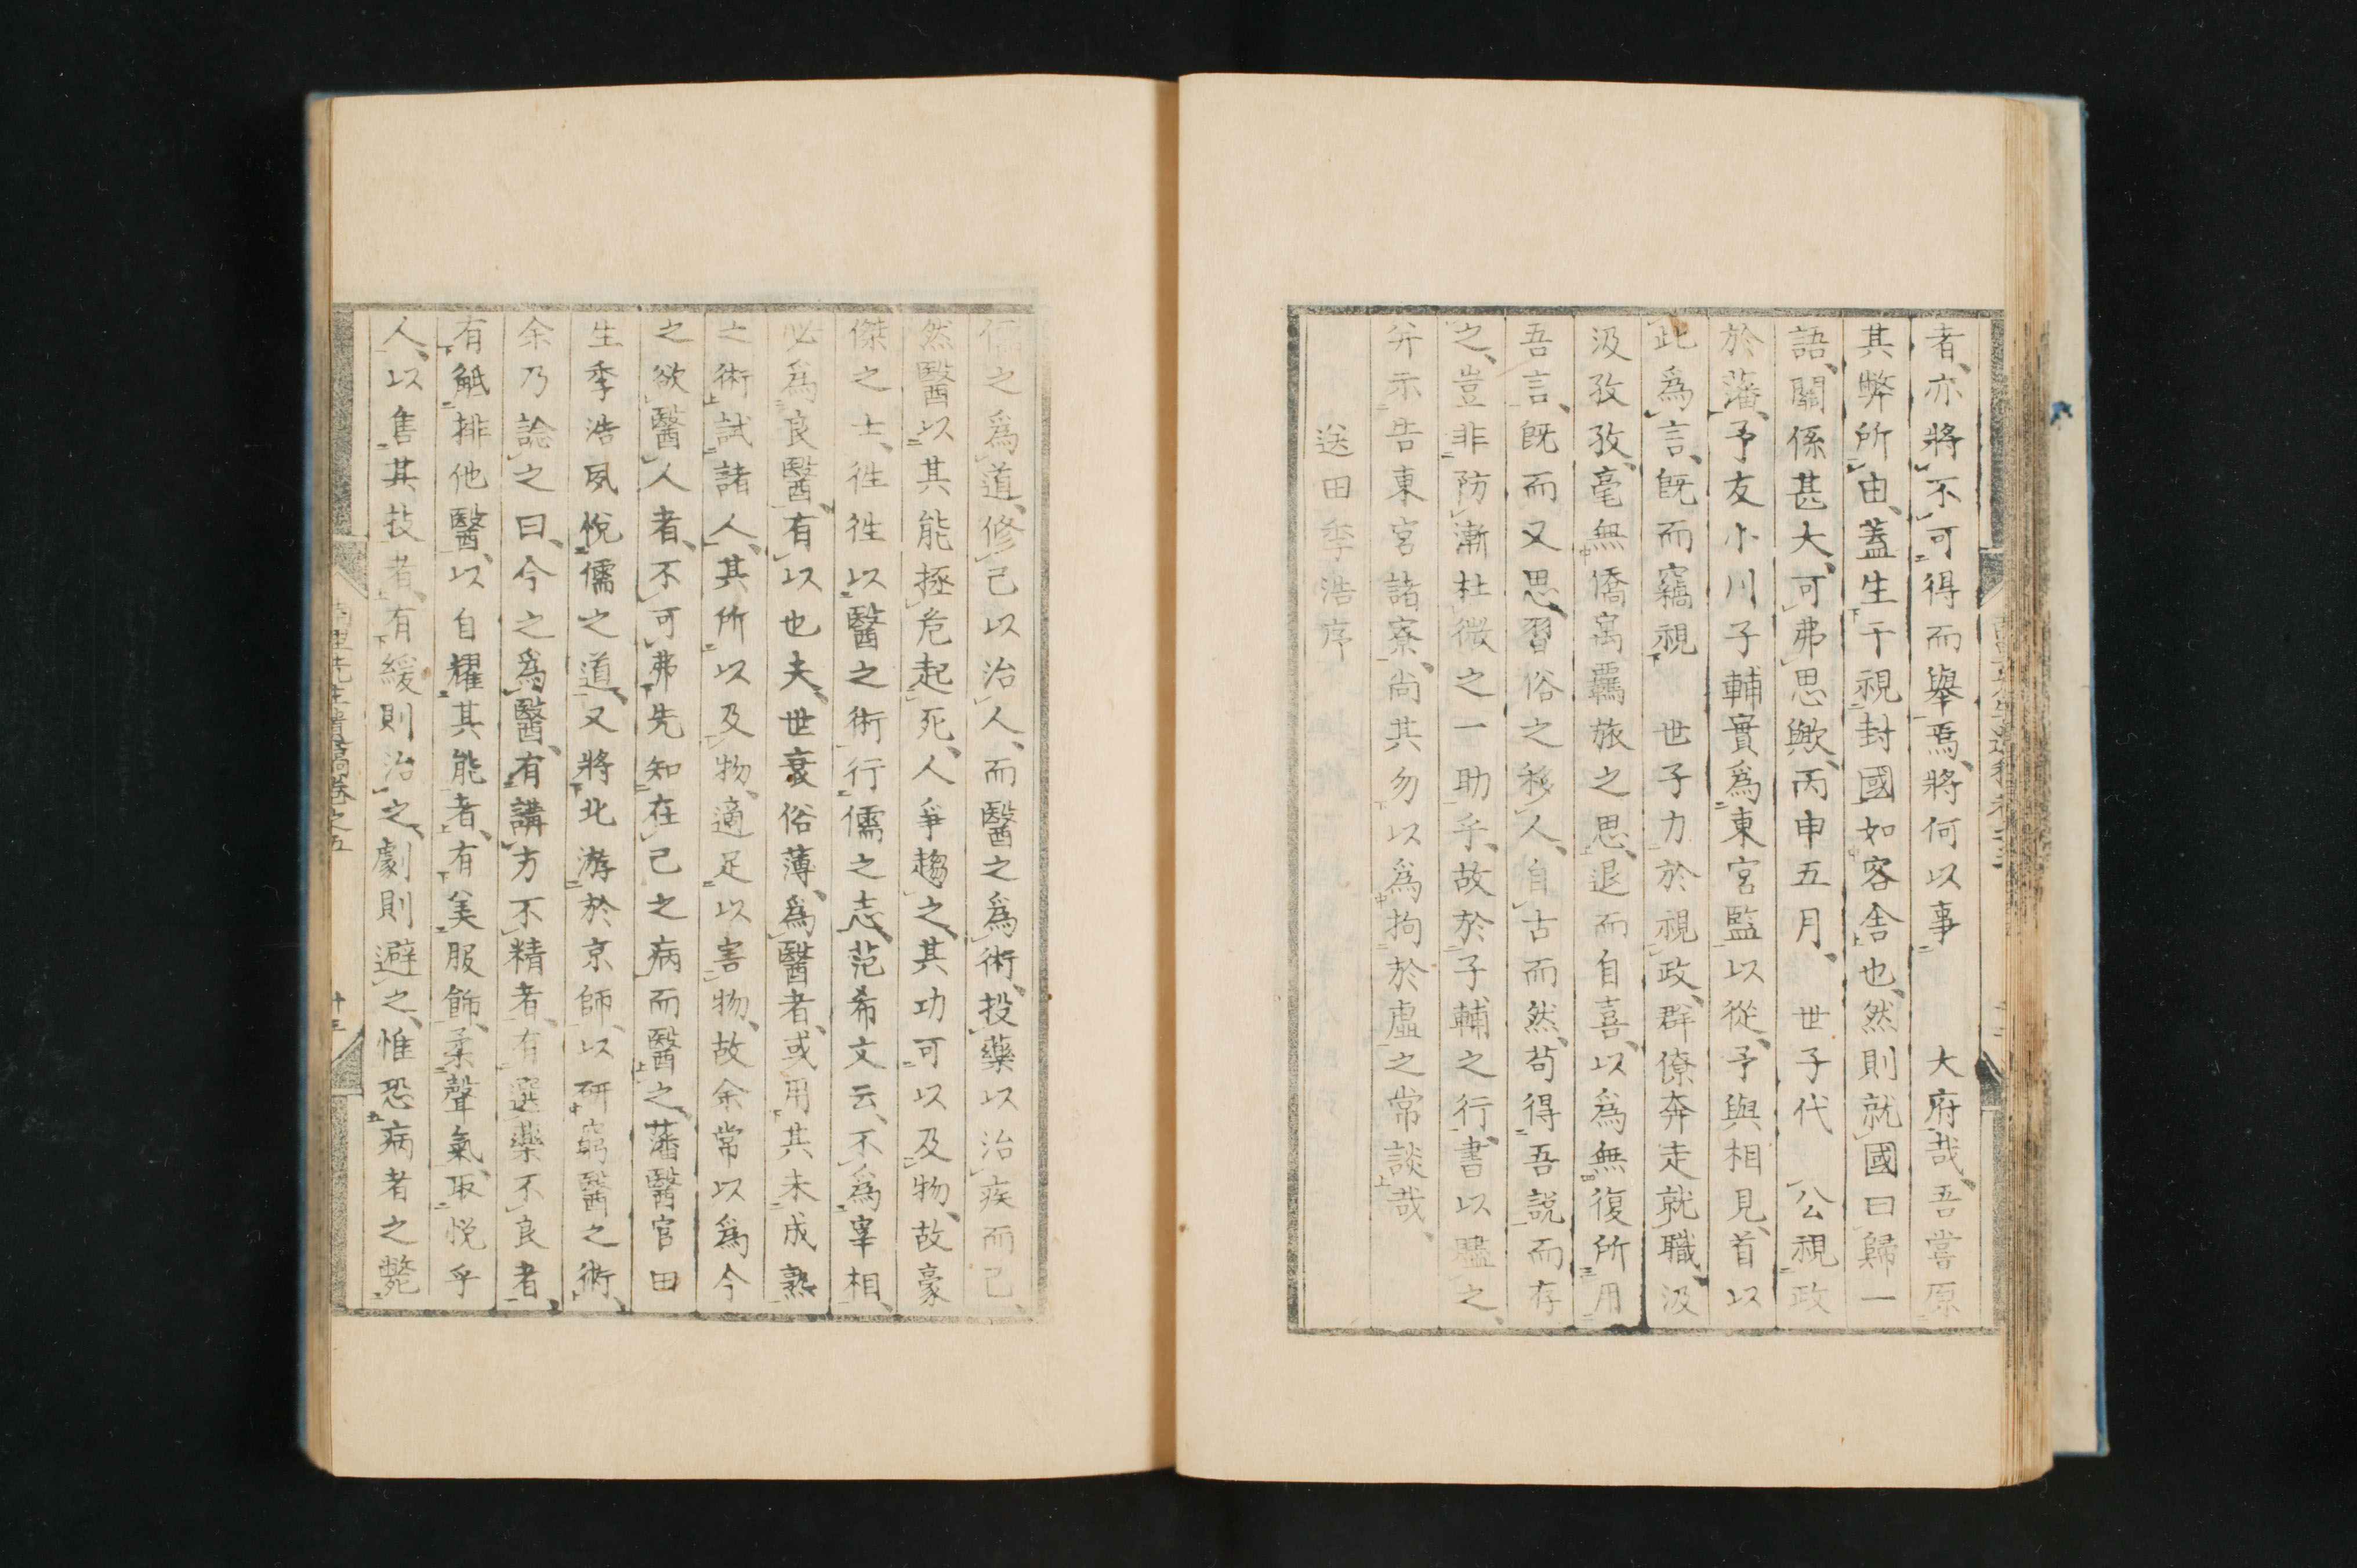 者、亦將不可得而舉焉、將何以事　大府哉、吾嘗原
其弊所由、蓋生于視封國如客舍也、然則就國曰歸一
語、關係甚大、可弗思歟、丙申五月、　世子代　公視政
於藩、予友小川子輔實爲東宮監以從、予與相見、首以
此爲言、既而竊視　世子力於視政、群僚奔走就職、汲
汲孜孜、毫無僑寓羈旅之思、退而自喜、以爲無復所用
吾言、既而又思、習俗之移人、自古而然、苟得吾説而存
之、豈非防漸杜微之一助乎、故於子輔之行、書以贐之、
并示告東宮諸寮、尚其勿以爲拘於虛之常談哉、
送田季浩序
儒之爲道、修己以治人、而醫之爲術、投藥以治疾而已、
然醫以其能拯危起死、人爭趨之、其功可以及物、故豪
傑之士、徃徃以醫之術、行儒之志、范希文云、不爲宰相、
必爲良醫、有以也夫、世衰俗薄、爲醫者、或用其未成熟
之術、試諸人、其所以及物、適足以害物、故余常以爲今
之欲醫人者、不可弗先知在己之病而醫之、藩醫官田
生季浩夙悅儒之道、又將北游於京師、以研窮醫之術、
余乃諗之曰、今之爲醫、有講方不精者、有選藥不良者、
有觝排他醫、以自耀其能者、有美服飾、柔聲氣、取悅乎
人、以售其技者、有緩則治之、劇則避之、惟恐病者之斃
先生遺稿卷之五
十三